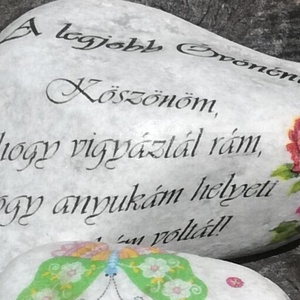 A legjobb Óvónén
Köszönöm,
hogy vigyáztál rám,
ogy anyukám helyett
voltál!